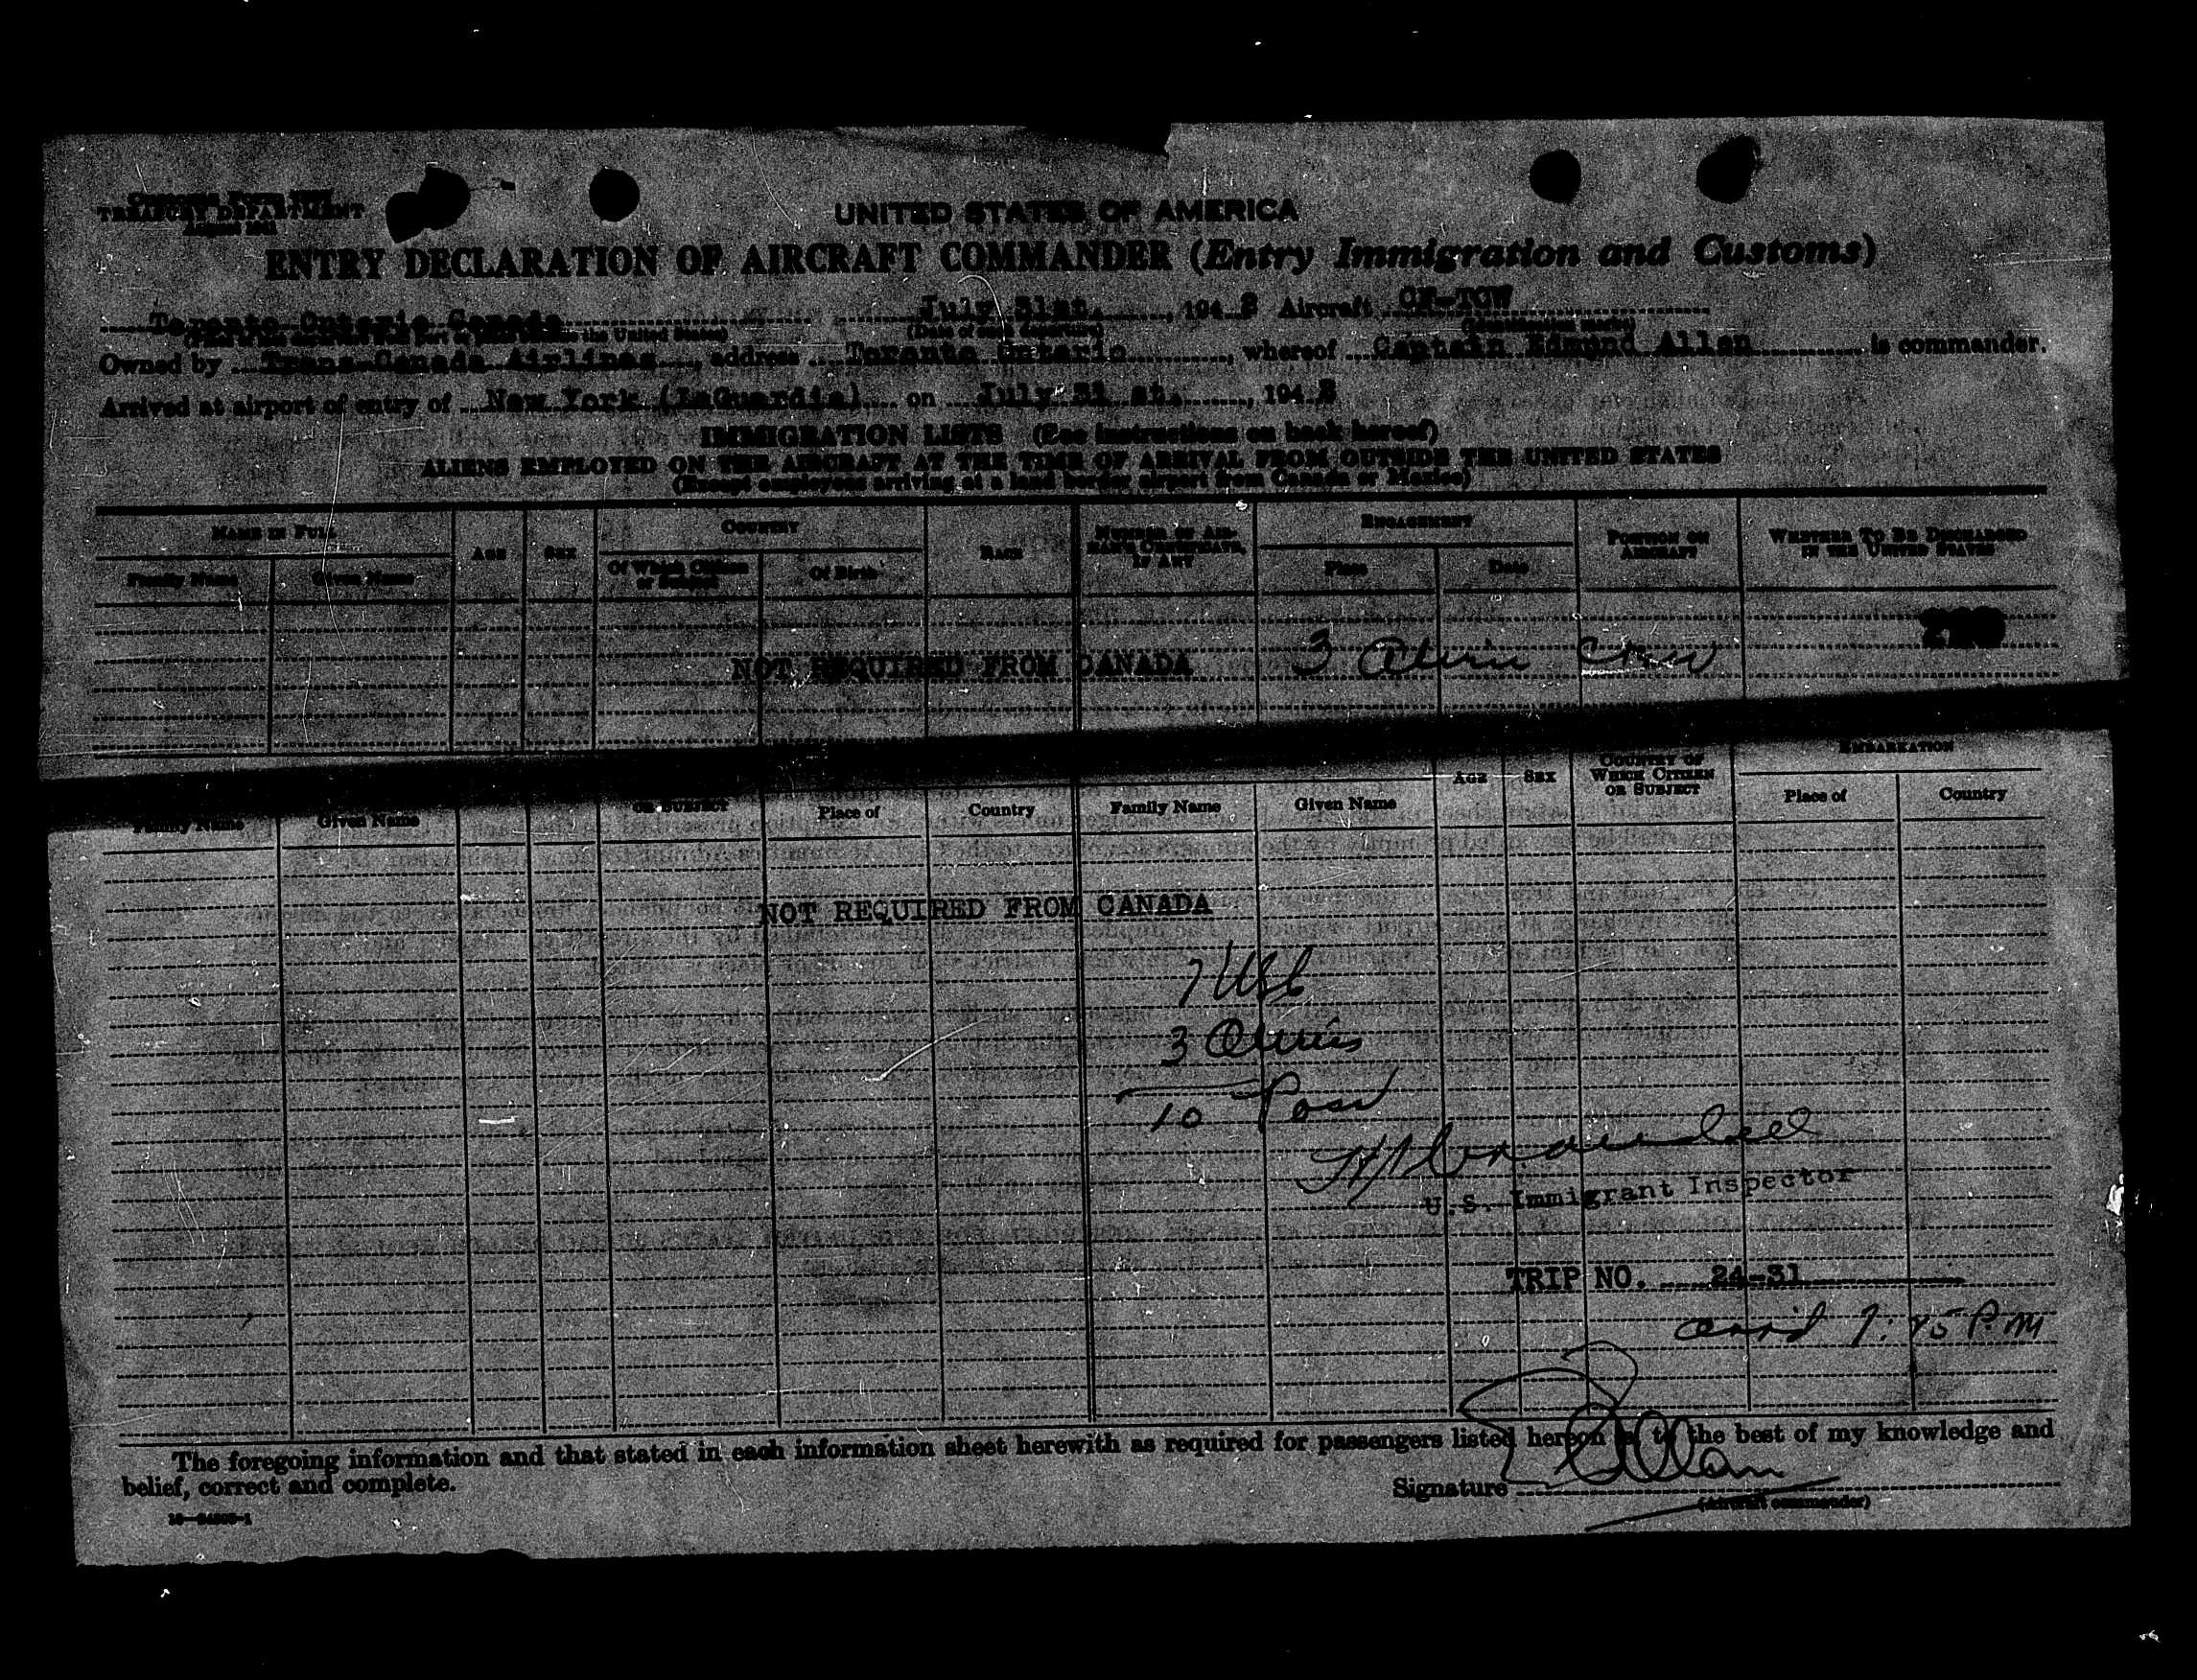 TREASURY DEPARTMENT
UNITED STATES OF AMERICA
ENTRY DECLARATION OF AIRCRAFT COMMANDER (Entry Immigration and Customs)
Toronto Ontario Canada July 31st. , 194 Aircraft CF-TGW
Owned by Trans-Canada Airlines , address Toronto Ontario , whereof Captain Edmund Allen is commander.
Arrived at airport of entry of New York (LaGuardia) on July 31 st. , 194
IMMIGRATION LISTS (See instructions on back hereof)
ALIENS EMPLOYED ON THE AIRCRAFT AT THE TIME OF ARRIVAL FROM OUTSIDE THE UNITED STATES
(Except employees arriving at a land border airport from Canada or Mexico)
NAME IN FULL AGE SEX COUNTRY RACE NUMBER OF AIRMAN'S CERTIFICATE, IF ANY ENGAGEMENT POSITION ON AIRCRAFT WHETHER TO BE DISCHARGED IN THE UNITED STATES
Family Name Given Name Of Which Citizen or Subject Of Birth Place Date
NOT REQUIRED FROM CANADA 3 Crew
AGE SEX COUNTRY OF WHICH CITIZEN OR SUBJECT EMBARKATION
Family Name Given Name OR SUBJECT Place of Country Family Name Given Name Place of Country
NOT REQUIRED FROM CANADA
7 USC
3 Aliens
10 Pass
U.S. Immigrant Inspector
TRIP NO. 24-31
P.M
The foregoing information and that stated in each information sheet herewith as required for passengers listed hereon is to the best of my knowledge and
belief, correct and complete.
Signature E Allan
(Aircraft commander)